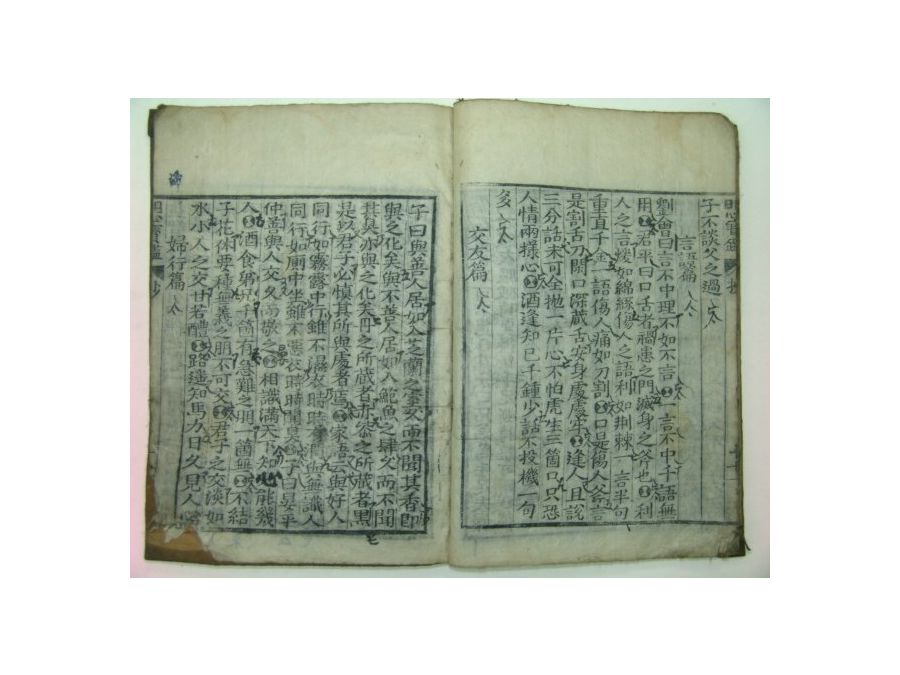 子不談父之過
言語篇
劉會曰言不中理不如不言 一言不中千語無
用 君平曰口舌者禍患之門滅身之斧也 利
人之言煖如綿絲傷人之語利如荊棘一言半句
重直千金一語傷人痛如刀割 口是傷人斧言
是割舌刀閉口深藏舌安身處處牢 逢人且說
三分話未可全抛一片心不怕虎生三箇口只恐
人情兩樣心 酒逢知己千鍾少話不投機一句
多
交友篇
子曰與善人居如入芝蘭之室久而不聞其香即
與之化矣與不善人居如入鮑魚之肆久而不聞
其臭亦與之化矣丹之所藏者赤漆之所藏者黑
是以君子必慎其所與處者焉 家語云與好人
同行如霧露中行雖不濕衣時時有潤與無識人
同行如廁中坐雖不汚衣時時聞臭 子曰晏平
仲善與人交久而敬之 相識滿天下知心能幾
人 酒食兄弟千箇有急難之朋一箇無 不結
子花休要種無義之朋不可交 君子之交淡如
水小人之交甘若醴 路遙知馬力日久見人心
婦行篇
寶鑑 抄